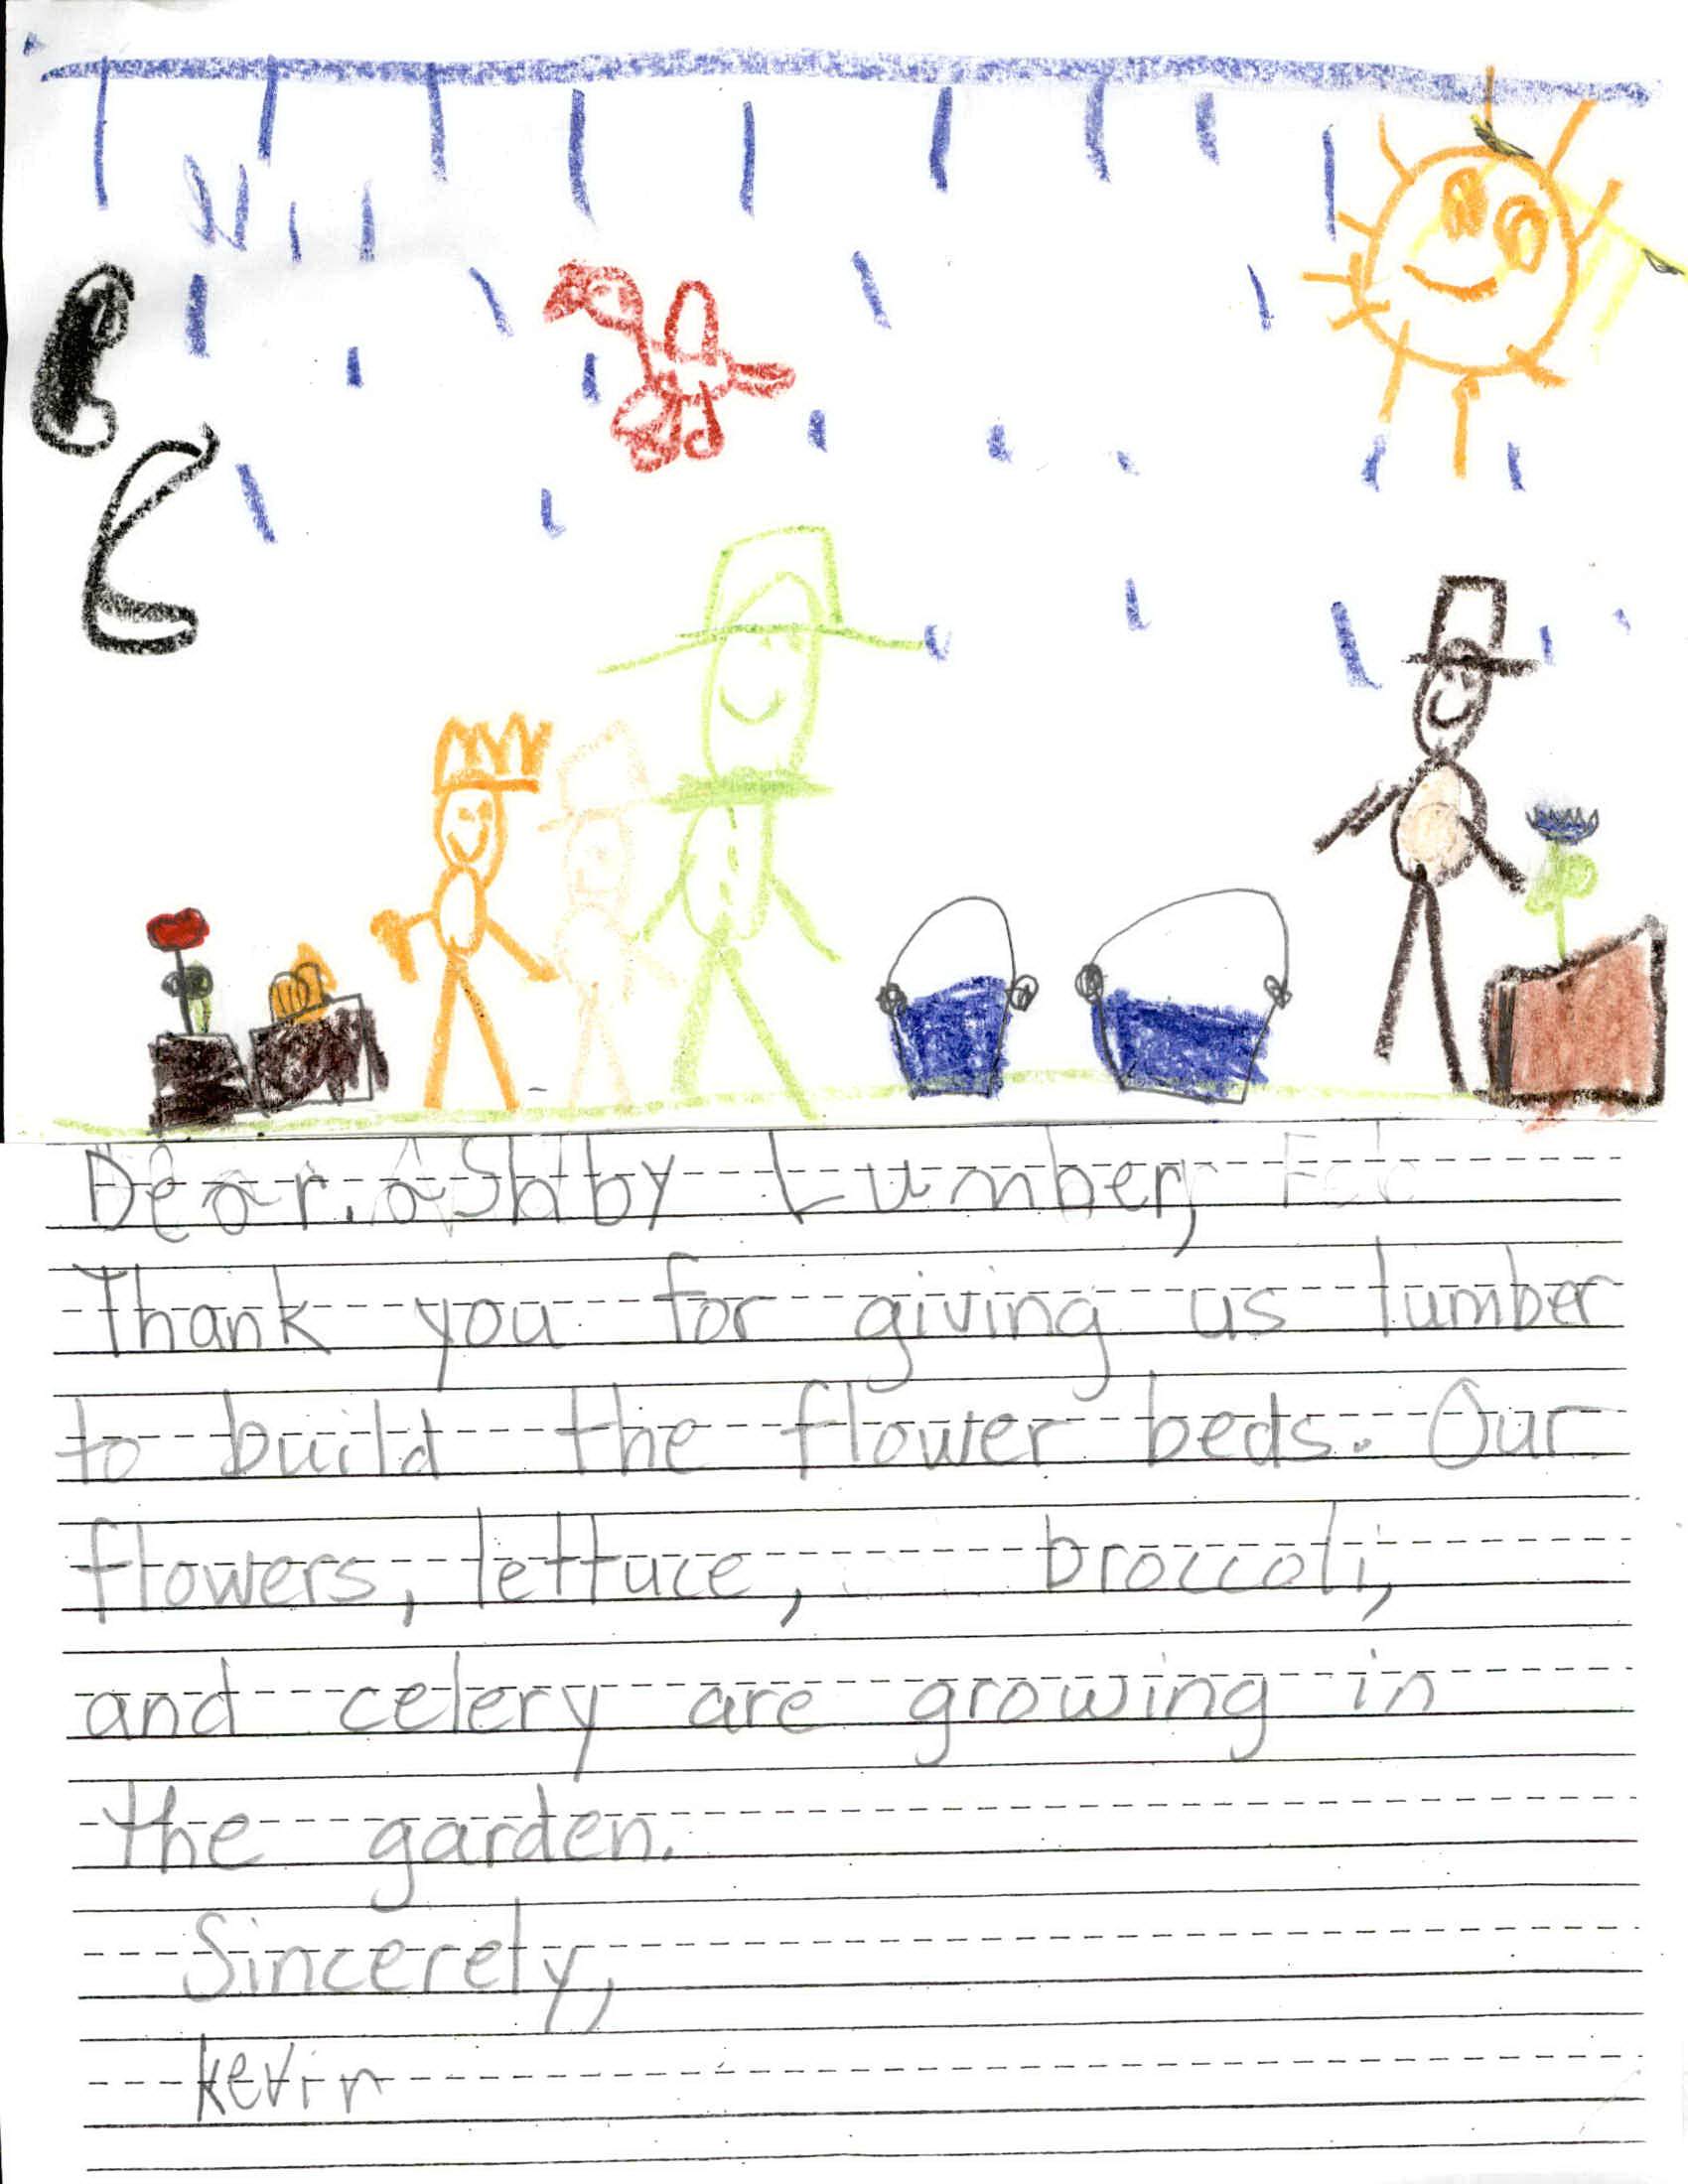 Dear. aShby Lumber,
Thank you for giving us lumber
to build the flower beds. Our
flowers, lettuce, broccoli,
and celery are growing in
the garden.
Sincerely,
kevin